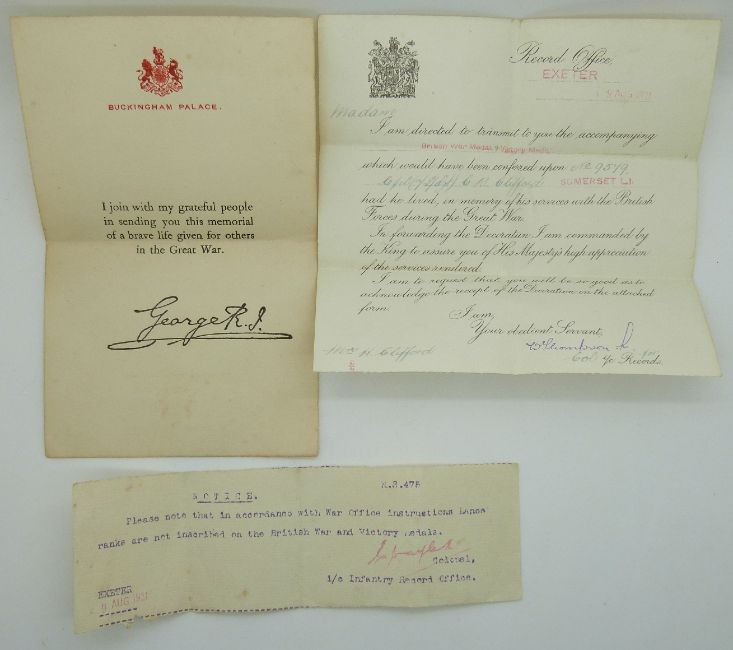 BUCKINGHAM PALACE.
I join with my grateful people
in sending you this memorial
of a brave life given for others
in the Great War.
George R.I.
Record Office,
EXETER
Madam
I am directed to transmit to you the accompanying
British War Medal & Victory Medal
which would have been conferred upon No 9579
C. R. Clifford SOMERSET L.I.
had he lived, in memory of his services with the British
Forces during the Great War.
In forwarding the Decoration I am commanded by
the King to assure you of His Majesty's high appreciation
of the services rendered.
I am to request that you will be so good as to
acknowledge the receipt of the Decoration on the attached
form.
I am,
Your obedient Servant,
Col i/c Records.
Mrs H. Clifford
NOTICE.
R.S.475
Please note that in accordance with War Office instructions Lance
ranks are not inscribed on the British War and Victory Medals.
Colonel,
i/c Infantry Record Office.
EXETER